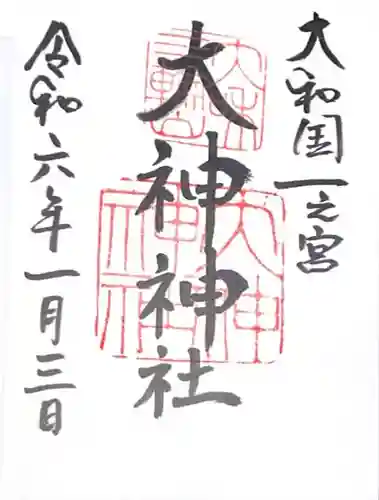 大和国一之宮
大神神社
令和六年一月三日